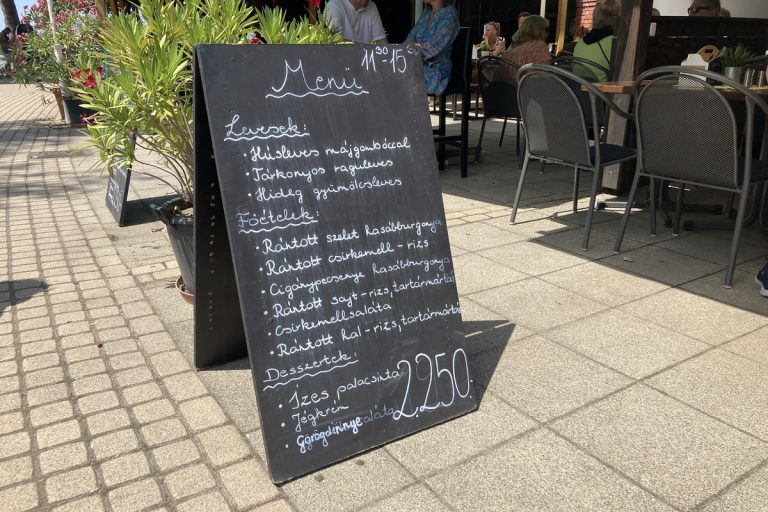 Menü 11³⁰-15
Levesek:
• Húsleves májgombóccal
• Tárkonyos raguleves
• Hideg gyümölcsleves
Főételek:
• Rántott szelet hasábburgonya
• Rántott csirkemell - rizs
• Cigánypecsenye hasábburgonya
• Rántott sajt - rizs, tartármártás
• Csirkemellsaláta
• Rántott hal - rizs, tartármártás
Desszertek:
• Ízes palacsinta
• Jégkrém
• Görögdinnye
2.250.